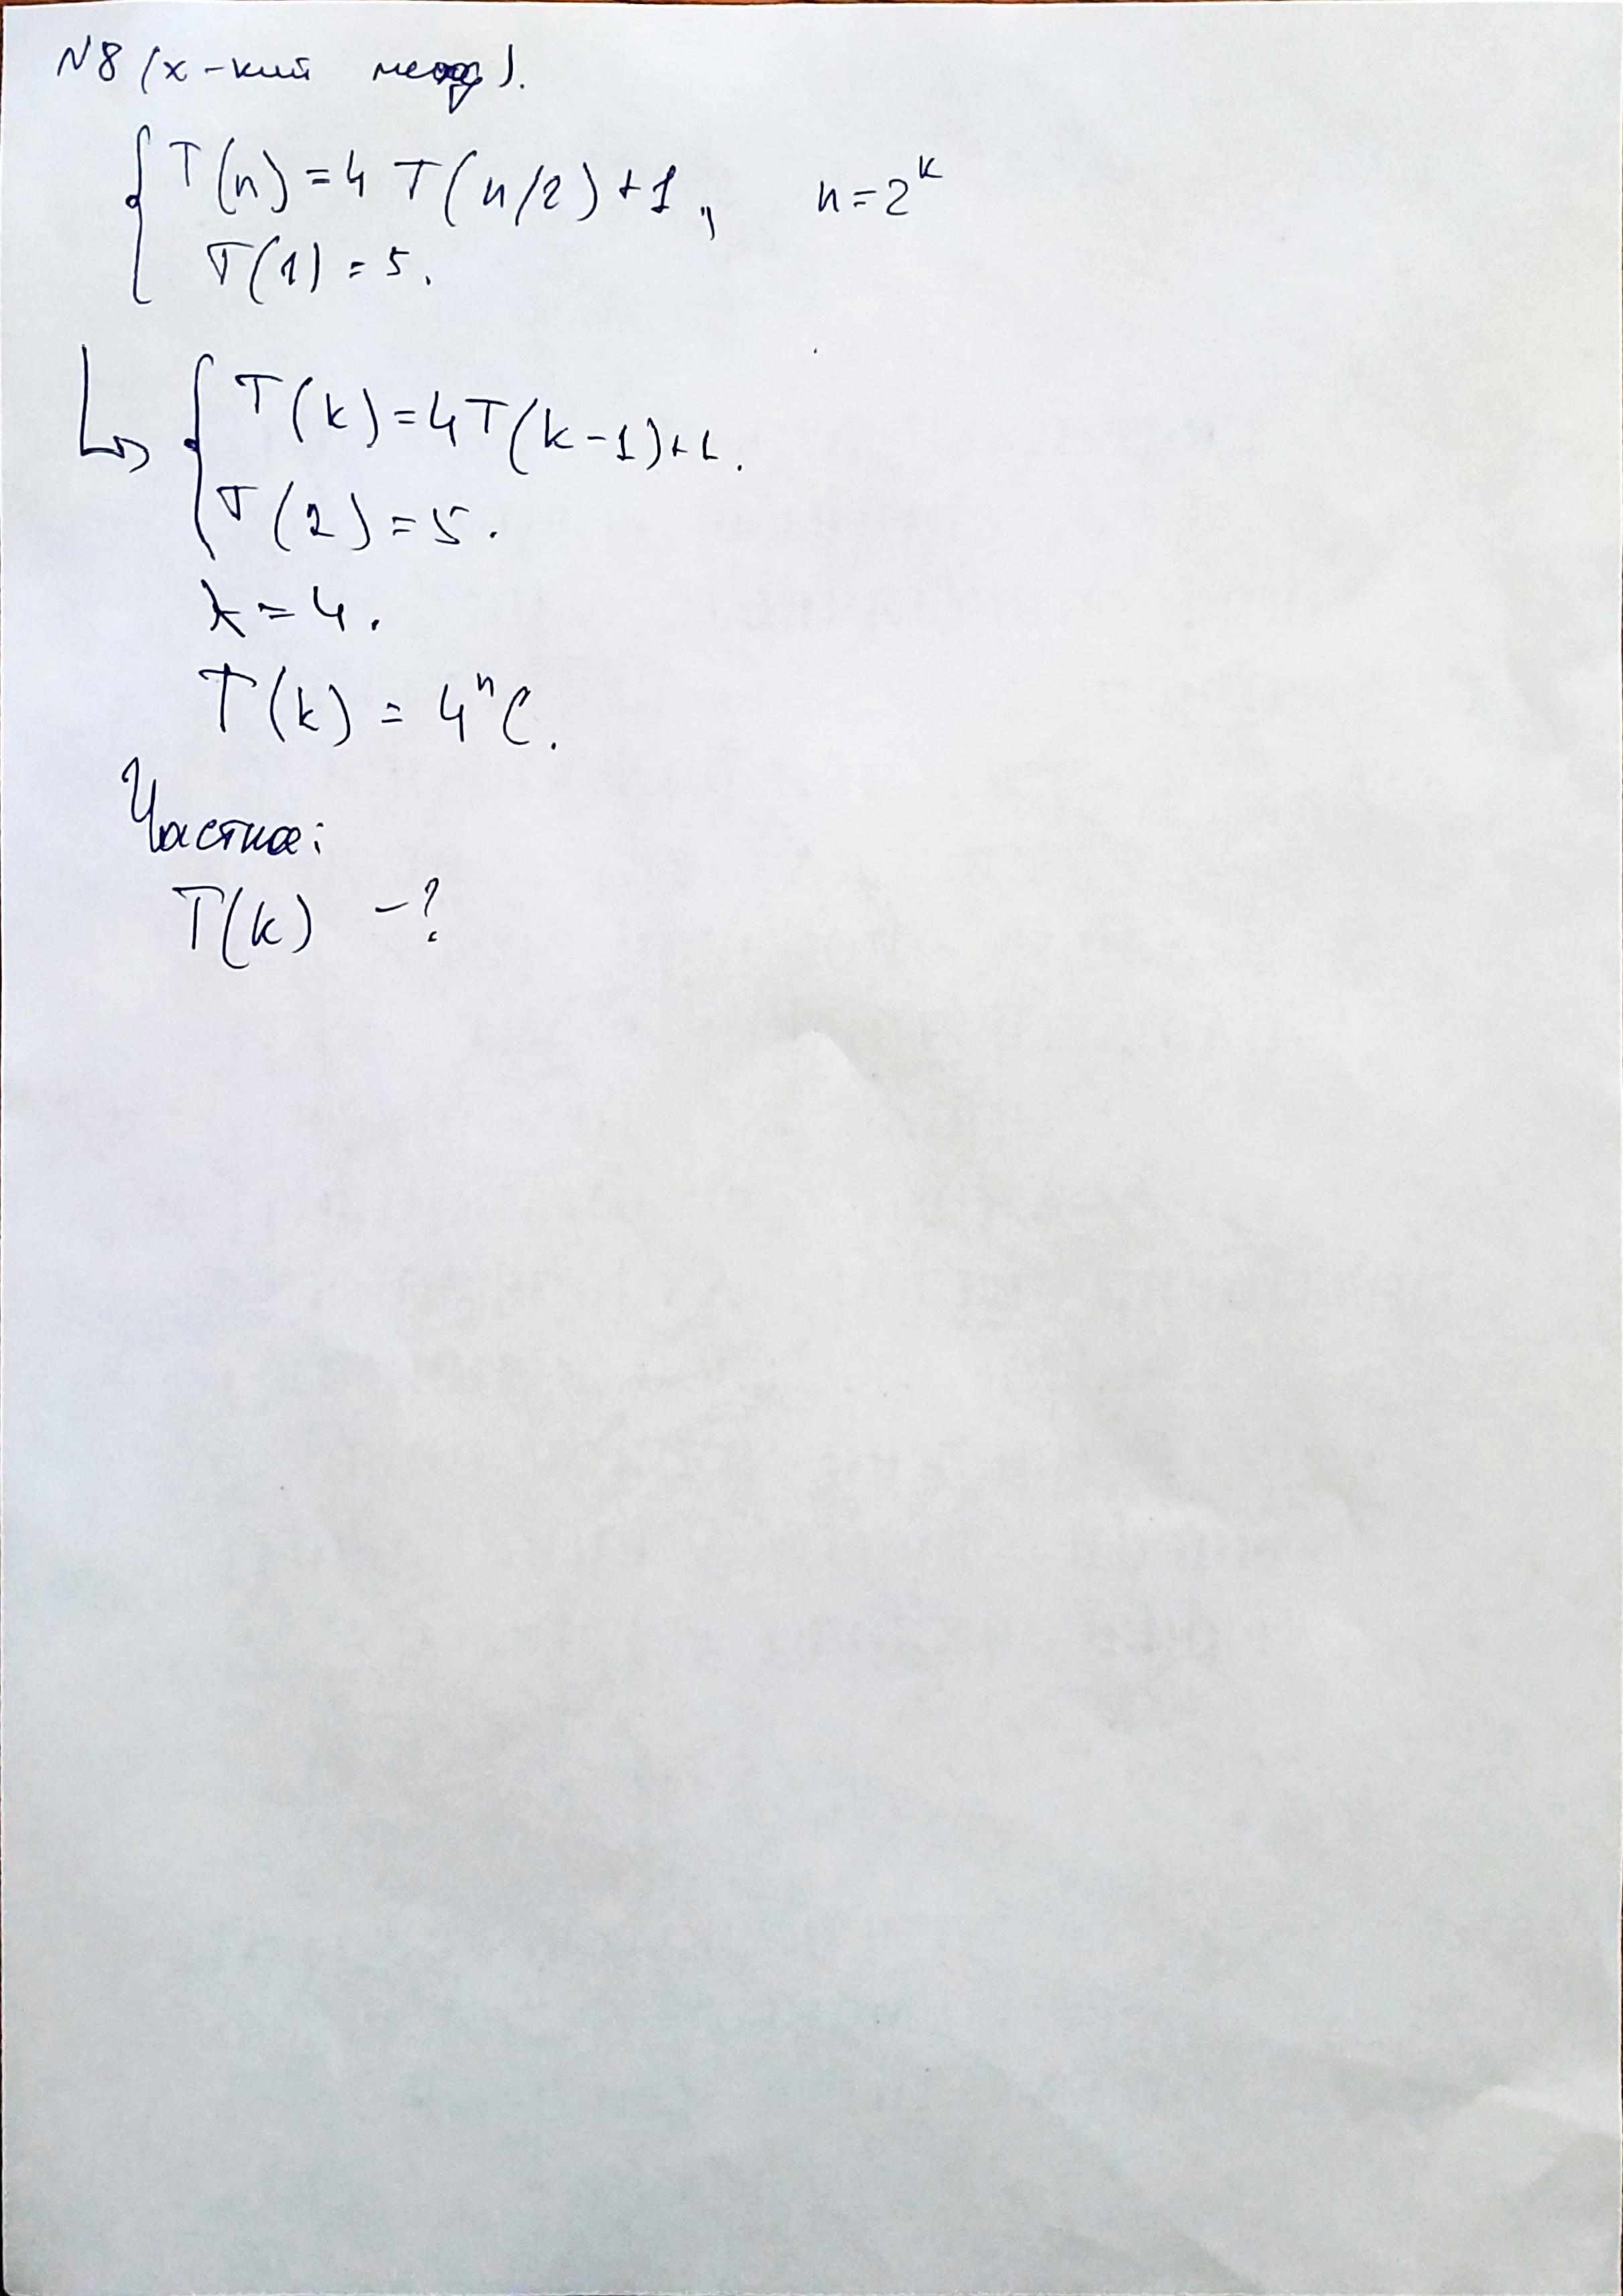 N8 (х-кий метод).
T(n)=4 T(n/2)+1, n=2^k
T(1)=5.
T(k)=4T(k-1)+1.
T(2)=5.
λ=4.
T(k)=4^n C.
Частка:
T(k) -?